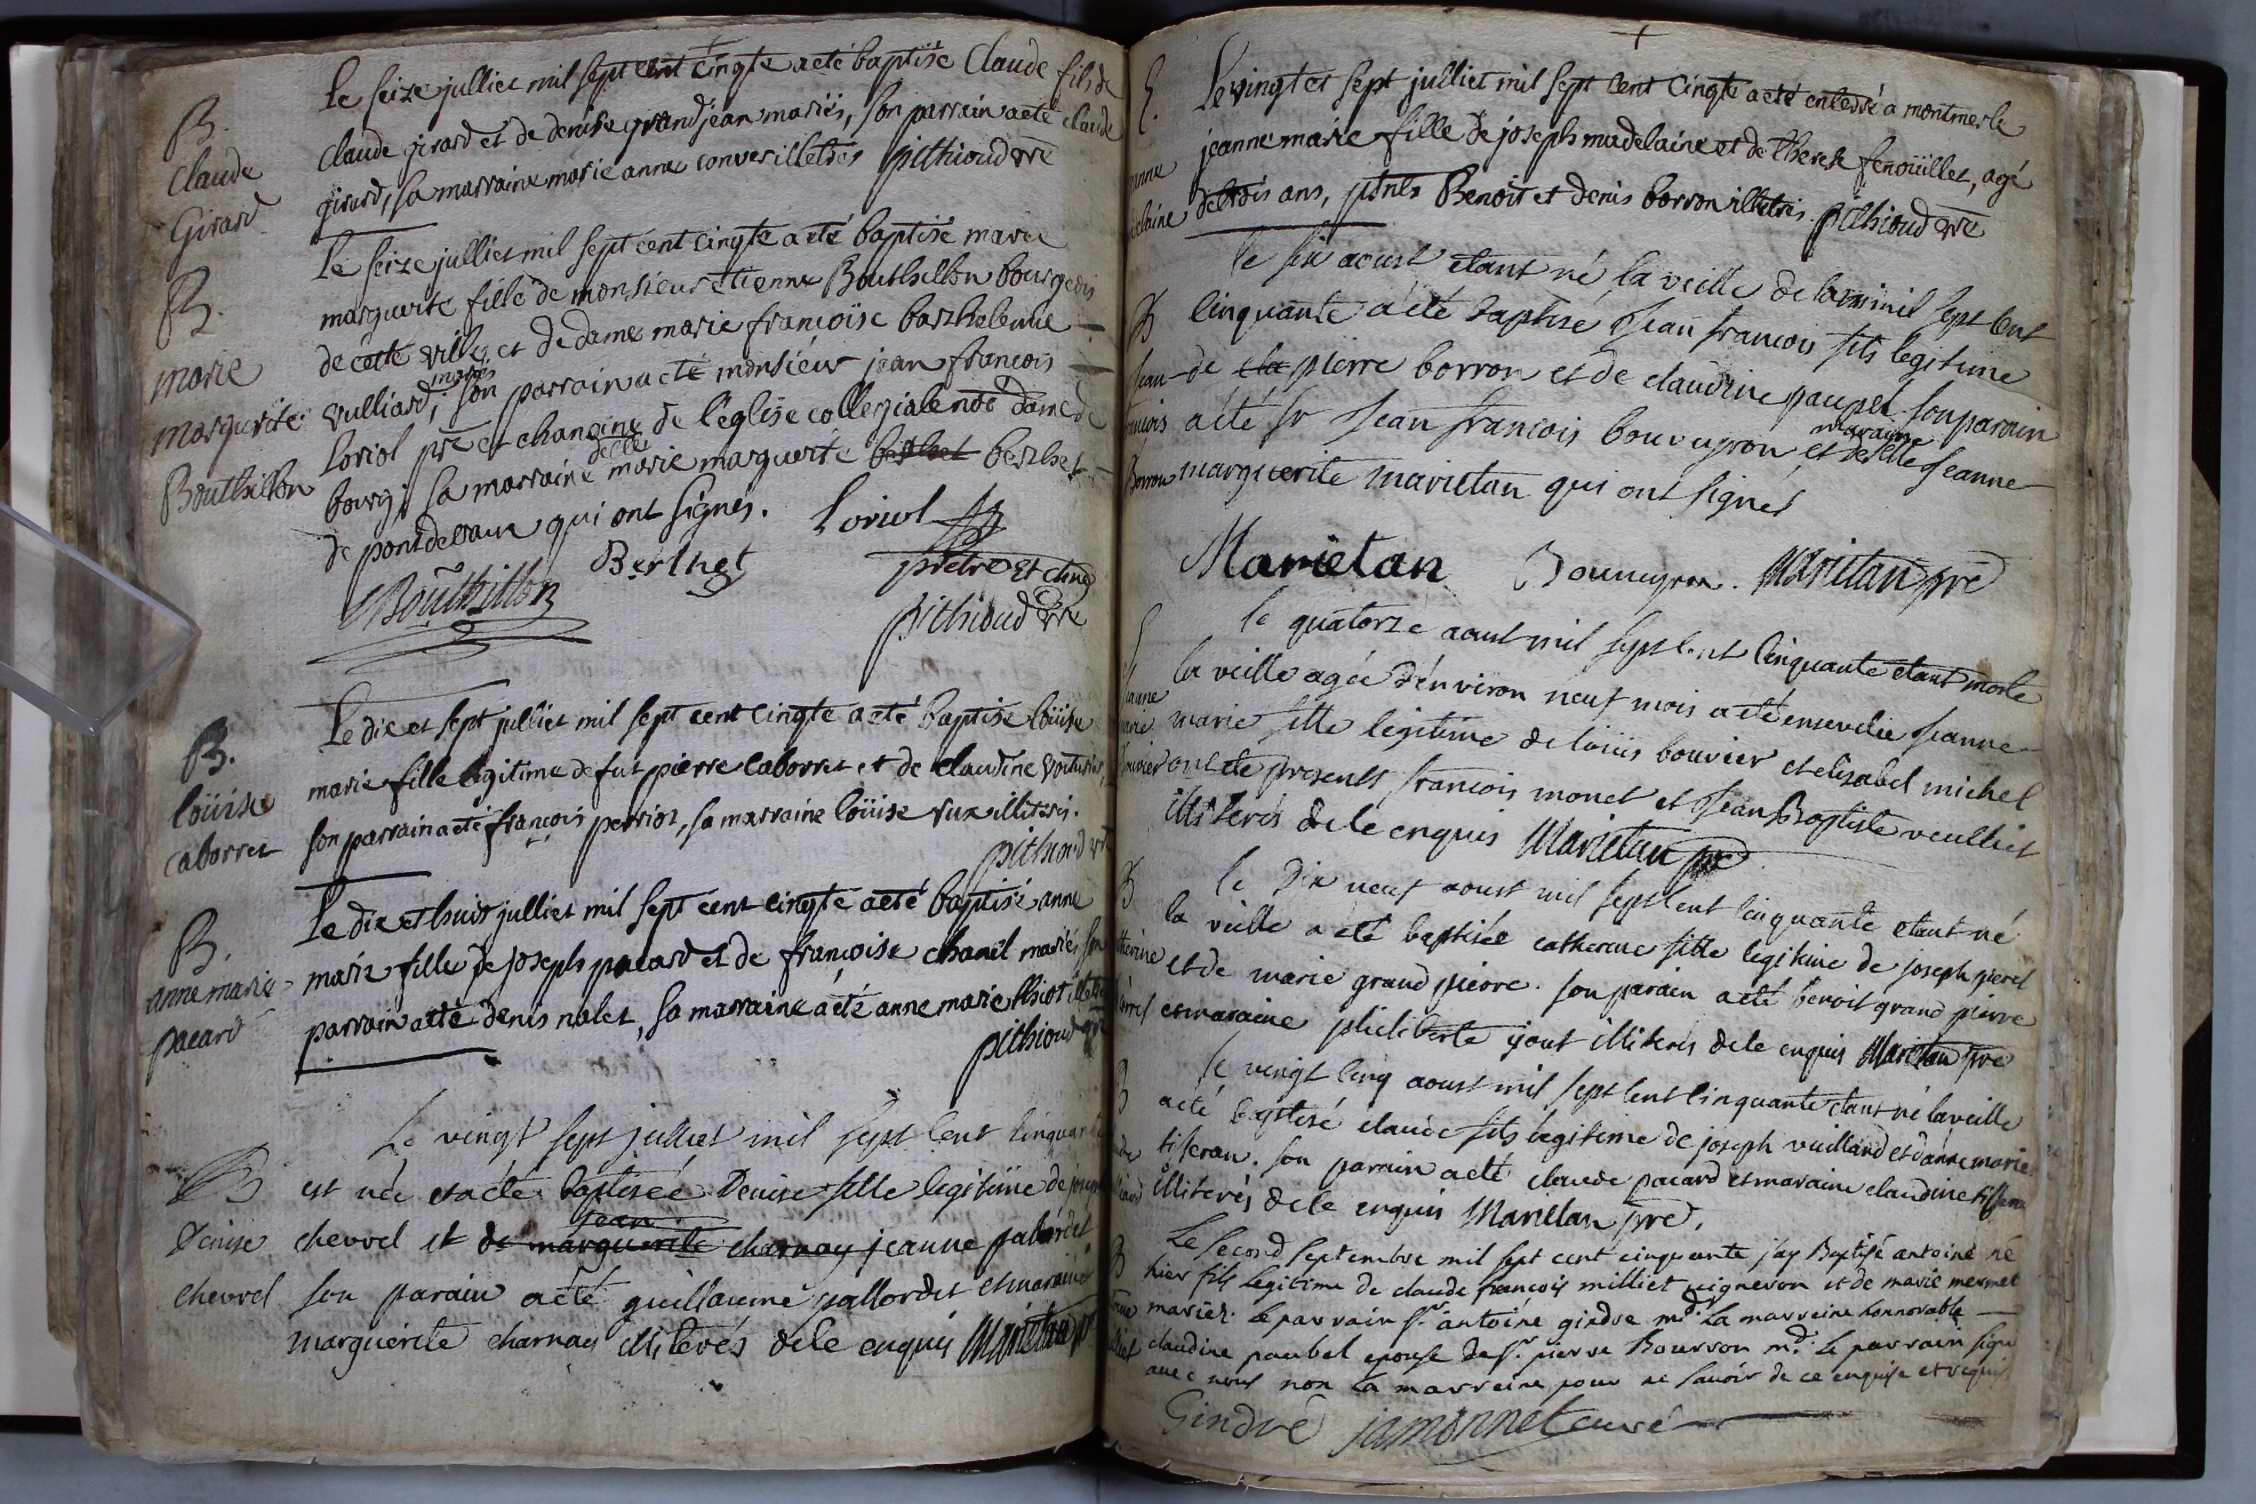 B.
Claude
Girard
Le seize julliet mil sept cent cinqte a eté baptisé Claude fils de
Claude girard et de denise grandjean mariés, son parrain a eté claude
girard, sa marraine marie anne convers illetrés pithioud vre
B.
marie
marguerite
Bouthillon
Le seize julliet mil sept cent cinqte a eté baptisé marie
marguerite fille de monsieur etienne Bouthillon bourgeois
de cette ville, et de dame marie françoise barthelemie
vulliard, mariés son parrain a eté monsieur jean françois
Loriol pre et chanoine de l'eglise collegiale nôe dame de
bourg, sa marraine delle marie marguerite berthet berthet
de pontdevaux qui ont signés. Loriol
Bouthillon Berthet pretre et chne
pithioud vre
B.
loüise
caborret
Le dix et sept julliet mil sept cent cinqte a eté baptisé loüise
marie fille legitime de fut pierre caborret et de claudine voiturier,
son parrain a eté françois perrior, sa marraine loüise rux illitrés.
pithioud vre
B.
anne marie
pacard
Le dix et huit julliet mil sept cent cinqte a eté baptisé anne
marie fille de joseph pacard et de françoise chanel mariés, son
parrain a eté denis nalet, sa marraine a eté anne marie thiot illetrés
pithioud vre
B
Denise
chevrel
Le vingt sept julliet mil sept cent cinquante
est née et a eté baptiseé Denise fille legitime de joseph
jean
chevrel et de marguerite charnay jeanne pallordet
son parain a eté guillaume pallordet et maraine
marguerite charnay illiterés de ce enquis Marietan pre
Le vingt et sept julliet mil sept cent cinqte a eté enterré a montmerle
jeanne marie fille de joseph madelaine et de therese fenoüillet, agé
de trois ans, pnts Benoit et denis borron illetrés. pithioud vre
B
Jean
françois
Borron
le six aoust etant né la veille de lan mil sept cent
cinquante a eté baptisé Jean francois fils legitime
de cla pierre borron et de claudine paupel. son parain
a eté sr Jean francois bouvugron et maraine deselle Jeanne
marguerite marietan qui ont signés
Marietan Bouvugron. Marietan pre
Jeanne
marie
Bouvier
le quatorze aoust mil sept cent cinquante etant morte
la veille ageé d'environ neuf mois a eté ensevelie Jeanne
marie fille legitime de loüis bouvier et elisabel michel
ont eté presents francois monet et Jean Baptiste veulliet
illiterés de ce enquis Marietan pre
B
le dix neuf aoust mil sept cent cinquante etant né
la veille a eté baptiseé catherine fille legitime de joseph pierel
et de marie grand pierre. son parain a eté benoit grand pierre
et maraine philiberte ijout illiterés de ce enquis Marietan pre
B
le vingt cinq aoust mil sept cent cinquante etant né la veille
a eté baptisé claude fils legitime de joseph vuilland et d'anne marie
tiseran. son parrain a eté claude pacard et maraine claudine tisseran
illiterés de ce enquis Marietan pre.
B
Le second septembre mil sept cent cinquante j'ay Baptisé antoine né
hier fils legitime de claude françois milliet vigneron et de marie mermet
mariés. Le parrain sr. antoine gindre md. La marreine honnorable
claudine paubel epouse de sr. pierre Bourron md. le parrain signe
avec nous non la marreine pour ne savoir de ce enquise et requis
Gindre jamonnet curé